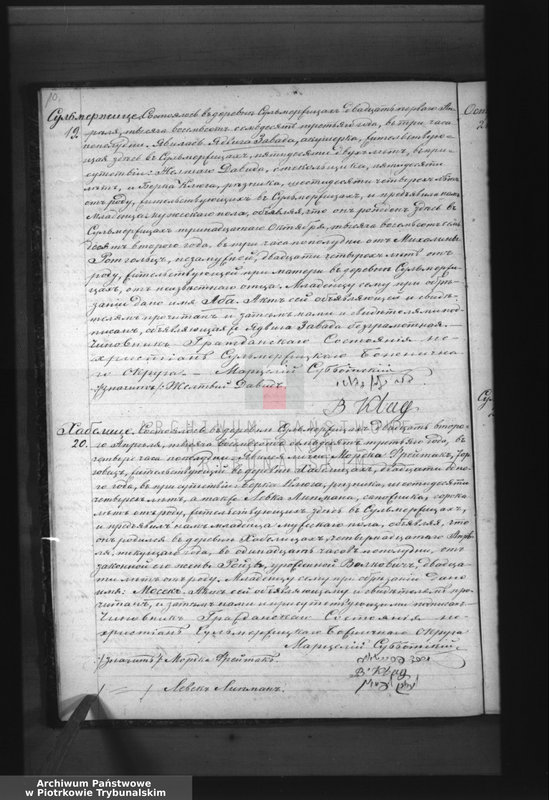 10.
Сульмержице. Состоялось въ деревнѣ Сульмержицахъ двадцать перваго Ап-
19. рѣля, тысяча восемьсотъ семьдесятъ третьяго года, въ три часа
пополудни. Явилась Ядвига Завада, акушерка, жительствую-
щая здѣсь въ Сульмержицахъ, пятидесяти двухъ лѣтъ, въ при-
сутствіи: Давида, пятидесяти
лѣтъ, и Берка Клюга, рѣзника, шестидесяти четырехъ лѣтъ
отъ роду, жительствующихъ въ Сульмержицахъ, и предъявила намъ
Младенца мужескаго пола, объявляя, что онъ рожденъ здѣсь въ
Сульмержицахъ тринадцатаго Октября, тысяча восемьсотъ семь-
десятъ втораго года, въ три часа пополудни отъ Михалины
незамужней, двадцати четырехъ лѣтъ отъ
роду, жительствующей при матери въ деревнѣ Сульмержи-
цахъ, отъ неизвѣстнаго отца. Младенцу сему при обрѣ-
заніи дано имя Аба. Актъ сей объявляющей и свидѣ-
телямъ прочитанъ и затѣмъ нами и свидѣтелями под-
писанъ, объявляющая Ядвига Завада безграмотная.
Чиновникъ Гражданскаго Состоянія не-
христіанъ Сульмержицкаго Божнична-
го округа. Марцелій Субботскій
/:значитъ:/ Давидъ.
Хабелице. Состоялось въ деревнѣ Сульмержицахъ двадцать втора-
20. го Апрѣля, тысяча восемьсотъ семьдесятъ третьяго года, въ
четыре часа пополудни. Явился лично Мортка Фрейтакъ, тор-
говецъ, жительствующій въ деревнѣ Хабелицахъ, двадцати одна-
го года, въ присутствіи: Берка Клюга, рѣзника, шестидесяти
четырехъ лѣтъ, а также Левка Липмана, сапожника, сорока
лѣтъ отъ роду, жительствующихъ здѣсь въ Сульмержицахъ,
и предъявилъ намъ младенца мужескаго пола, объявляя, что
онъ родился въ деревнѣ Хабелицахъ, четырнадцатаго Апрѣ-
ля, текущаго года, въ одинадцать часовъ пополудни, отъ
законной его жены Рейзы, урожденной Волковичъ, двадца-
ти лѣтъ отъ роду. Младенцу сему при обрѣзаніи дано
имя: Мосекъ. Актъ сей объявляющему и свидѣтелямъ про-
читанъ, и затѣмъ нами и присутствующими подписанъ
Чиновникъ Гражданскаго Состоянія не-
христіанъ Сульмержицкаго Божничнаго Округа
Марцелій Субботскій
/:значитъ:/ Мортка Фрейтакъ.
Левекъ Липманъ.
Archiwum Państwowe
w Piotrkowie Trybunalskim